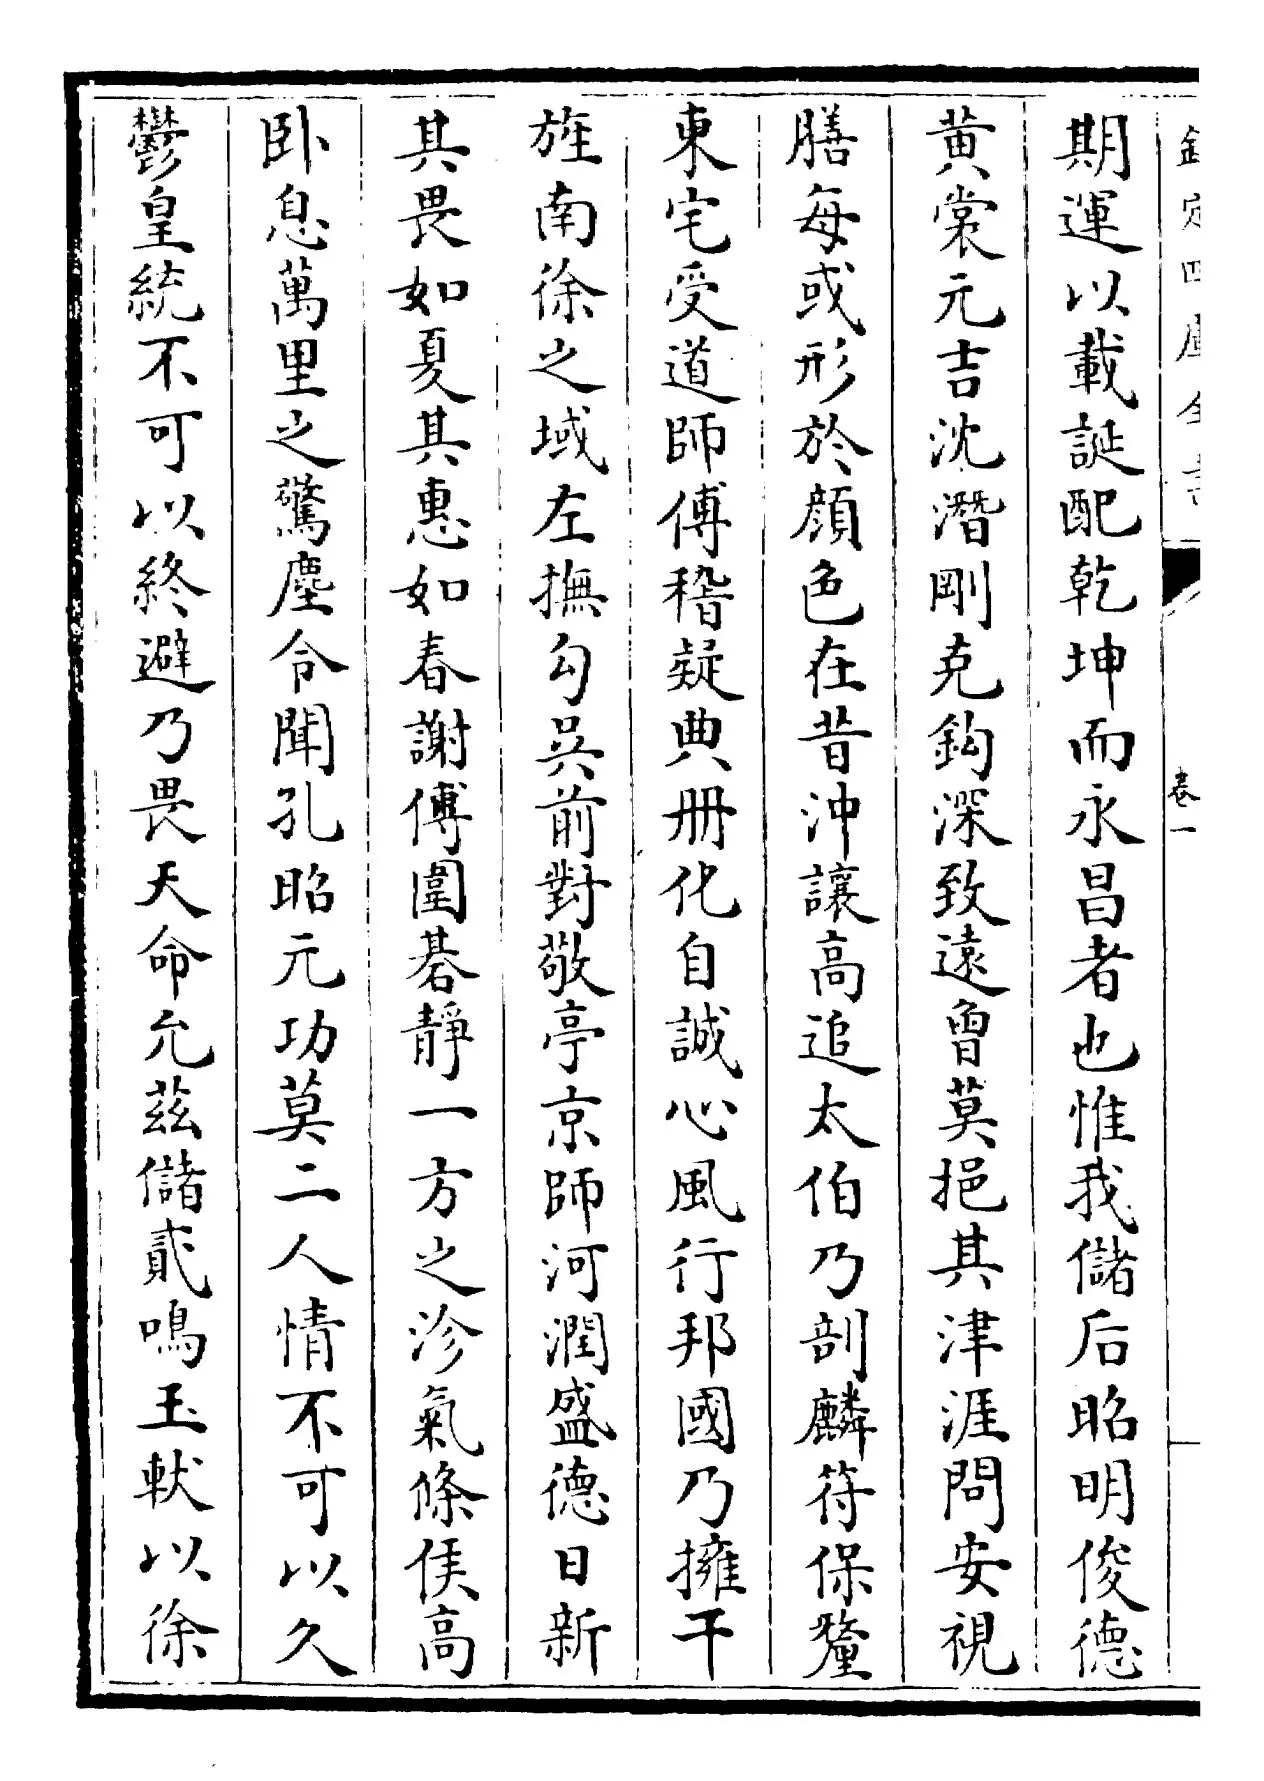 欽定四庫全書
卷一
期運以載誕配乾坤而永昌者也惟我儲后昭明俊德
黄裳元吉沈潛剛克鈎深致遠曾莫挹其津涯問安視
膳每或形於顔色在昔沖讓高追太伯乃剖麟符保釐
東宅受道師傅稽疑典册化自誠心風行邦國乃擁干
旌南徐之域左撫勾吳前對敬亭京師河潤盛德日新
其畏如夏其惠如春謝傅圍碁靜一方之沴氣條侯高
卧息萬里之驚塵令聞孔昭元功莫二人情不可以久
鬱皇統不可以終避乃畏天命允茲儲貳鳴玉軑以徐